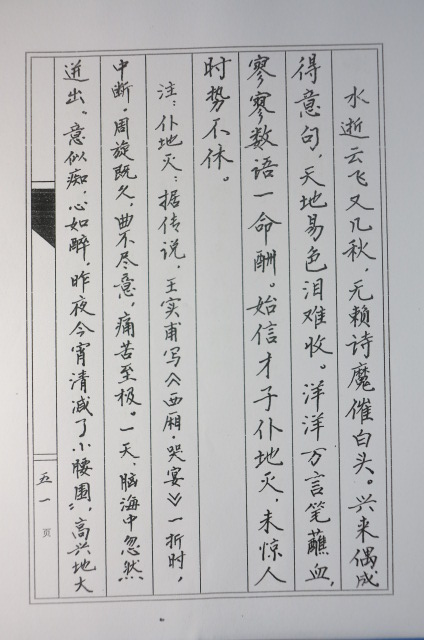 水逝云飞又几秋，无赖诗魔催白头。兴来偶成
得意句，天地易色泪难收。洋洋万言笔蘸血，
寥寥数语一命酬。始信才子仆地灭，未惊人
时势不休。
注：仆地灭：据传说，王实甫写《西厢·哭宴》一折时，
中断，周旋既久，曲不尽意，痛苦至极。一天，脑海中忽然
迸出。意似痴，心如醉，昨夜今宵清减了小腰围”，高兴地大
五一
页